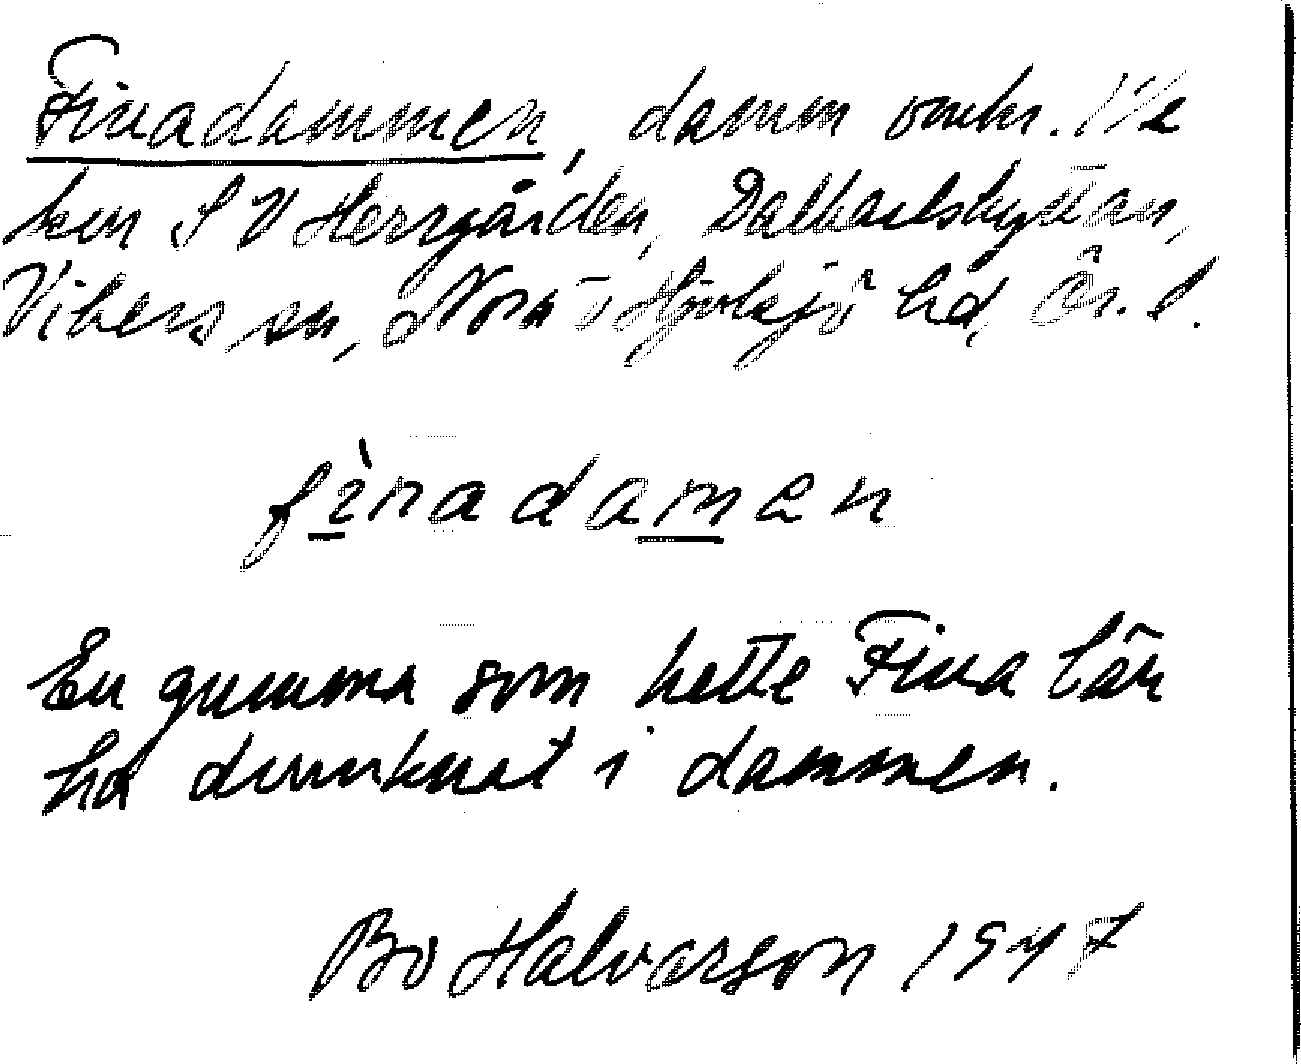 Finadammen, damm omkr. 1½
km SV Herrgården, Dalkarlshyttan,
Vikers sn, Nora o Hjulsjö hd, Ör. l.
fìnadamen
En gumma som hette Fina lär
ha drunknat i dammen.
Bo Halvarson 1947